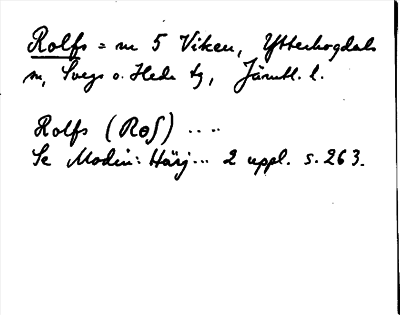 Rolfs = nr 5 Viken, Ytterhogdals
sn, Svegs o. Hede tg, Jämtl. l.
Rolfs (Rɵʃ) ....
Se Modin: Härj... 2 uppl. s. 263.